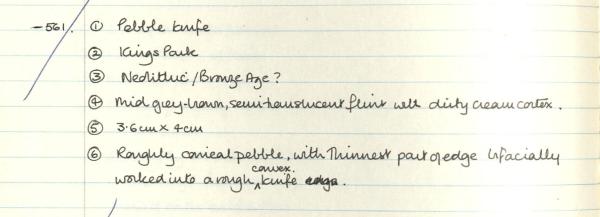 -561. ① Pebble knife
② Kings Park
③ Neolithic/Bronze Age?
④ Mid grey-brown, semi-translucent flint with dirty cream cortex.
⑤ 3.6cm x 4cm
⑥ Roughly conical pebble, with thinnest part of edge bifacially
worked into a rough convex knife edge.